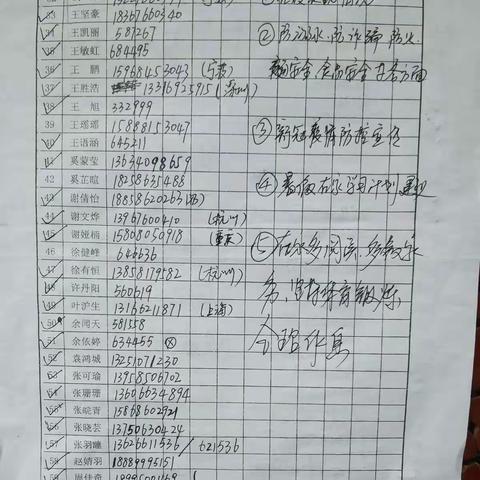 33 王坚豪 18367660340
34 王凯丽 587267
35 王敏虹 684495
36 王 鹏 15968453043 (宁波)
37 王胜浩 13316925915 (深圳)
38 王 旭 332999
39 王瑶瑶 15888153047
40 王语涵 645211
41 奚蒙莹 13634098659
42 奚芷暄 18258635488
43 谢倩怡 18658620263
44 谢文烨 13967600410 (杭州)
45 谢娅楠 15808050918 (重庆)
46 徐健峰 646636
47 徐有恒 13858179582 (杭州)
48 许丹阳 560619
49 叶沪生 13166211871 (上海)
50 余闻天 581558
51 余依婷 634455
52 袁鸿城 13251071230
53 张可瑜 13958506702
54 张珊珊 13606634894
55 张皖青 15868602921
56 张晓芸 13750630424
57 张羽曈 13626611536 / 621536
58 赵婧羽 18889995151
59 周佳奇
② 防溺水,防诈骗 防火
食品安全 等各方面
③ 新冠疫情防控宣传
④ 暑假在家学习计划
⑤ 在家多阅读,多做家
务,坚持体育锻炼
合理作息